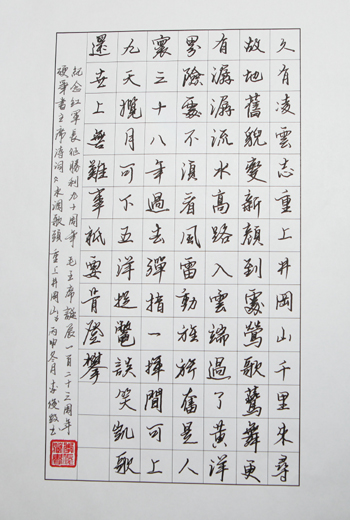 久有凌雲志重上井岡山千里来尋
故地舊貌變新顏到處鶯歌鷰舞更
有潺潺流水高路入雲端過了黃洋
界險處不須看風雷動旌旂奮是人
寰三十八年過去彈指一揮間可上
九天攬月可下五洋捉鱉談笑凱歌
還世上無難事祇要肯登攀
紀念紅軍長征勝利八十周年 毛主席誕辰一百二十三周年
硬筆書主席詩詞之水調歌頭 重上井岡山 丙申冬月 李